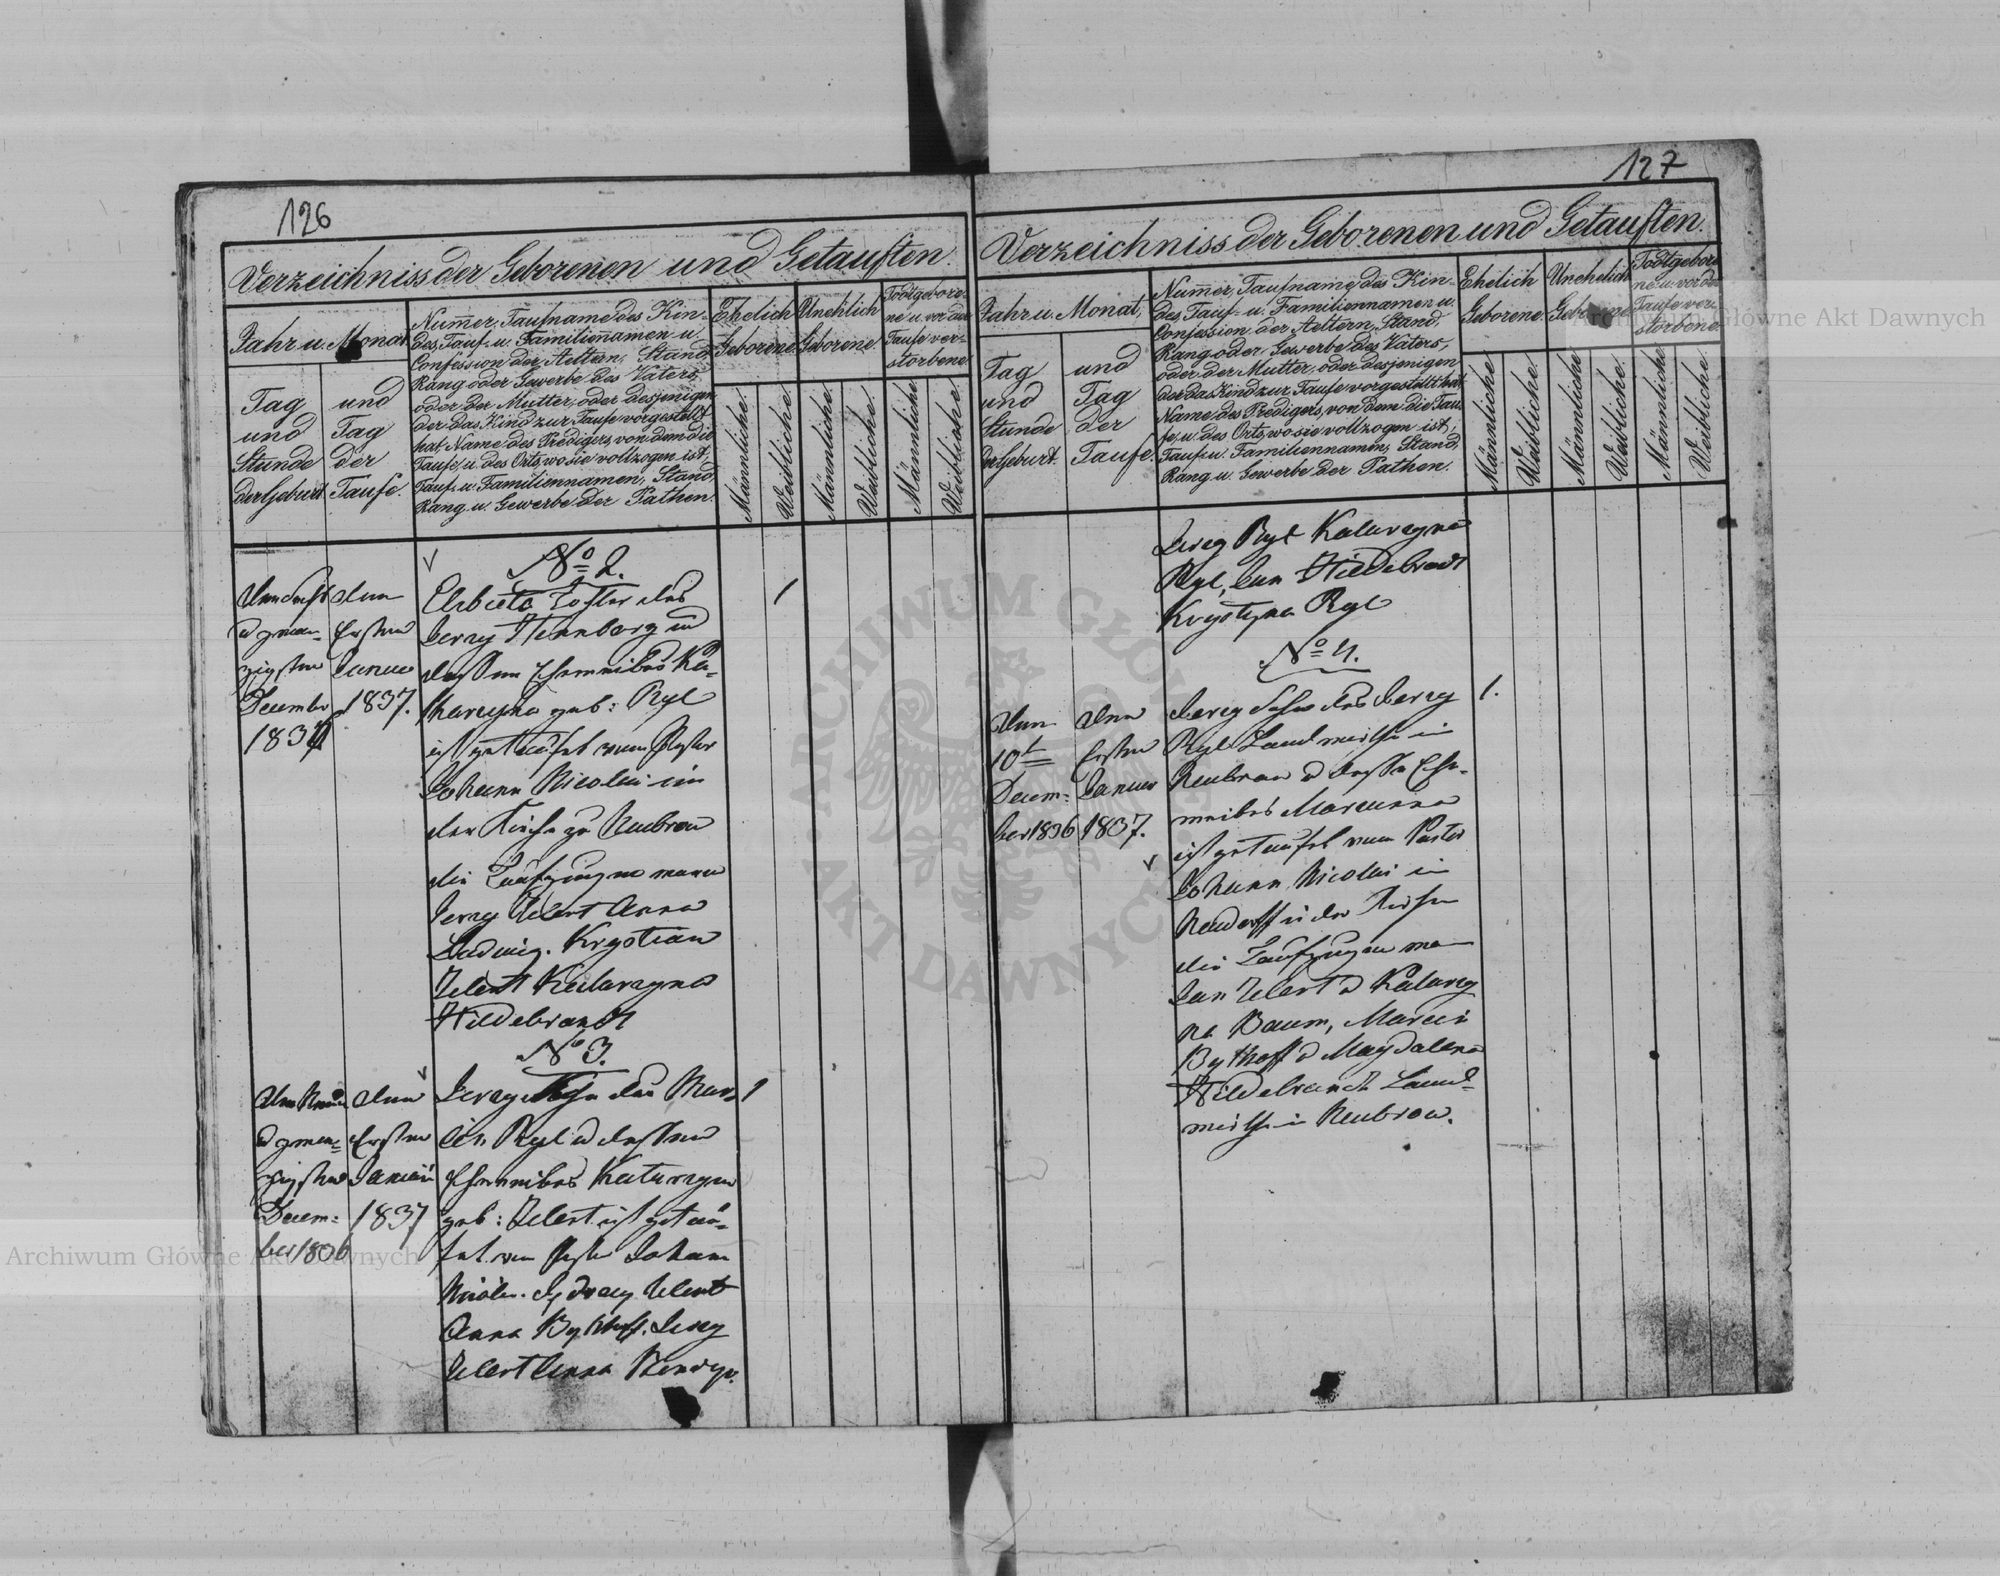 126
Verzeichniss der Geborenen und Getauften.
Jahr u. Monat
Tag
und
Stunde
der Geburt
und
Tag
der
Taufe.
Num̄er, Taufname des Kin-
des, Tauf- u. Familien̄namen u.
Confession der Aeltern, Stand,
Rang oder Gewerbe des Vaters,
oder der Mutter, oder desjenigen
der das Kind zur Taufe vorgestellt
hat, Name des Predigers, von dem die
Taufe, u. des Orts, wo sie vollzogen ist;
Tauf- u. Familiennamen, Stand,
Rang u. Gewerbe der Pathen.
Ehelich
Geborene.
Unehlich
Geborene.
Todtgebore-
ne u. vor der
Taufe ver-
storbene
Männliche.
Weibliche.
Männliche.
Weibliche.
Männliche.
Weibliche.
No 2.
u zwan-
zigsten
December
1836
den
Ersten
Januar
1837.
Elzbieta Tochter des
Jerzy Stennborg und
dessen Eheweibes Ka-
tharzyna geb: Ryl
ist getauft vom Pastor
Johann Nicolai in
der Kirche zu Neubrow
die Taufzeugen waren
Jerzy Zelent Anna
Ludwig. Krystian
Zelent Katarzyna
Hildebrandt
1
No 3.
den
u zwan-
zigsten
Decem-
ber 1836
den
Ersten
Januar
1837
Jerzy Sohn des Mar-
cin Ryl u dessen
Eheweibes Katarzyna
geb: Zelent ist getau-
fet vom Pastor Johann
Nicolai. Zelent
Anna Bythoff. Jerzy
Zelent Anna
1
127
Verzeichniss der Geborenen und Getauften.
Jahr u. Monat,
Tag
und
Stunde
der Geburt.
und
Tag
der
Taufe.
Num̄er, Taufname des Kin-
des, Tauf- u. Familiennamen u.
Confession der Aeltern, Stand,
Rang oder Gewerbe des Vaters,
oder der Mutter, oder desjenigen
der das Kind zur Taufe vorgestellt hat,
Name des Predigers, von dem die Tau-
fe, u. des Orts, wo sie vollzogen ist;
Tauf- u. Familiennamen, Stand,
Rang u. Gewerbe der Pathen.
Ehelich
Geborene.
Unehelich
Geborene.
Todtgebore-
ne u. vor der
Taufe ver-
storbene
Männliche
Weibliche.
Männliche
Weibliche.
Männliche
Weibliche.
Jerzy Ryl Katarzyna
Ryl, Jan Hildebrandt
Krystyna Ryl
No 4.
den
10t
Decem-
ber 1836
den
Ersten
Januar
1837.
Jerzy Sohn des Jerzy
Ryl Landwirth in
Neubrow u dessen Ehe-
weibes Maryanna
ist getauft vom Pastor
Johann Nicolai in
Neudorff in der Kirche
die Taufzeugen wa-
Jan Zelent u Katarzy
na Baum, Marcin
Bythoff u Magdalena
Hildebrandt Land-
wirthe in Neubrow.
1.
ARCHIWUM GŁÓWNE AKT DAWNYCH
Archiwum Główne Akt Dawnych
Archiwum Główne Akt Dawnych